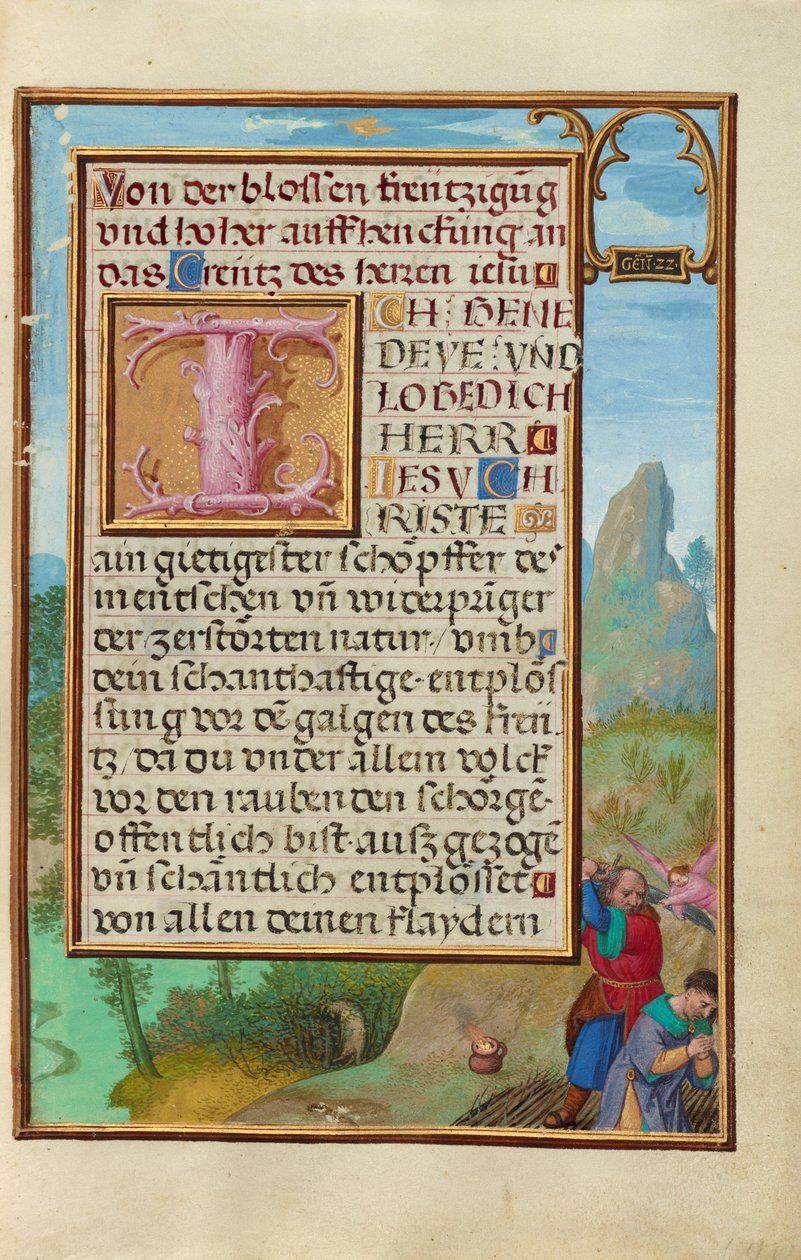 Von der blossen kreützigūg
vnd hoher auffhenckung an
das Creütz des herren iesu
GEÑ·22·
ICH BENE
DEYE VND
LOBEDICH
HERR
IESV CH
RISTE
ain gietigester schöpffer des
mentschen vñ widerprīger
der zerstörten natur / vmb
dein schanthaftige entplös
sung vor dē galgen des kreü
tz / da du vnder allem volck
vor den raubenden schörgē
offentlich bist auſz gezogē
vñ schāntlich entplösset
von allen deinen klaydern